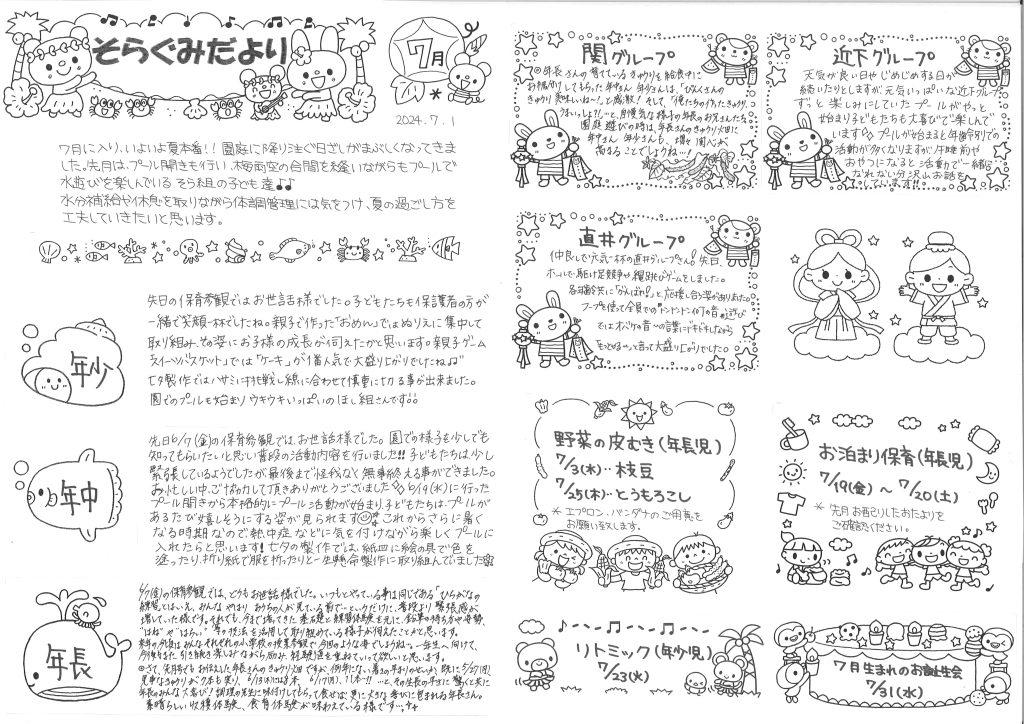 そらぐみだより
7月
2024.7.1
7月に入り、いよいよ夏本番!! 園庭に降り注ぐ日ざしがまぶしくなってきま
した。先月は、プール開きも行い、梅雨空の合間を縫いながらもプールで
水遊びを楽しんでいる そら組の子ども達♪♪
水分補給や休息を取りながら体調管理には気をつけ、夏の過ごし方を
工夫していきたいと思います。
年少
先日の保育参観ではお世話様でした。子どもたちも保護者の方が
一緒で笑顔一杯でしたね。親子で作った「おめん」では、ぬりえに集中して
取り組み、その姿にお子様の成長が伺えたかと思います。親子ゲーム
スイーツバスケット」では「ケーキ」が1番人気で大盛り上がりでしたね♫
七夕製作ではハサミに挑戦し線に合わせて慎重に切る事が出来ました。
園でのプールも始まりウキウキいっぱいのほし組さんです。
年中
先日6/7(金)の保育参観では、お世話様でした。園での様子を少しでも
知ってもらいたいと思い普段の活動内容を行いました!!子どもたちは少し
緊張しているようでしたが最後まで怪我なく無事終える事ができました。
お忙しい中ご協力して頂きありがとうございました 6/19(水)に行った
プール開きから本格的にプール活動が始まり、子どもたちは、プールが
あるたび嬉しそうにする姿が見られます これからさらに暑く
なる時期なので熱中症などに気を付けながら楽しくプールに
入れたらと思います!七夕の製作では、紙皿に絵の具で色を
塗ったり、折り紙で服を折ったりと一生懸命製作に取り組んでいました
年長
6/7(金)の保育参観では、どうもお世話様でした。いつもとやっている事は同じである「ひらがなの
練習とはいえ、みんなやはり おうちの人が見ている前で…というだけに、普段より緊張感が
増していた様です。それでも、今まで培てきた 基礎と練習体験を元に、鉛筆の持ち方や姿勢、
"はね"や"はらい" 等の技法を活用して取り組めている様子が伺えたことかと思います。
来年の今頃はみんなそれぞれの小学校の授業参観で今回のような場でしょうね…一年生へ向けて、
今後もまた引き続き楽しみながら励み、経験値を重ねていって欲しいと思います。
見事なきゅうりが
年長のみんな大喜び!調理の先生に味付けしてもらって食せば、更に大きな喜びに包まれる年長さん。
素晴らしい収穫体験、食育体験が味わえている様です…
関グループ
年長さんの育てているきゅうりを給食中に
お裾分けしてもらった年中さん 年少さんは、「ぴくみさんの
きゅうり美味しいね〜!」と感激!そして、「俺たちの作ったきゅうり、
うまいっしょ?!」…と、自慢気な様子の年長のお兄さんたち。
園庭遊びの時は、年長さんのきゅうり畑に
年中さん 年少さんも、増々関心が
高まることでしょうね…!
近下グループ
天気が良い日やじめじめする日が
続いたりとしますが元気いっぱいな近下グループ
ずっと楽しみにしていたプールがやっと
始まり子どもたちも大喜びで楽しんで
います プールが始まると年齢別での
活動が多くなりますが午睡前や
おやつになると活動で一緒に
なれない分沢山お話を
しています!!
直井グループ
仲良しで元気一杯の直井グループさん!先日、
ホールで駆け足競争や綱引きゲームをしました。
各年齢共に「がんばれ!」と応援し合う姿がありました。
フープを使って全員での「トントントン何の音」遊び
ではオバケの音〜の言葉にドキドキしながら
野菜の皮むき(年長児)
7/3(水)‥枝豆
7/25(木)‥とうもろこし
* エプロン、バンダナのご用意を
お願い致します。
お泊まり保育(年長児)
7/19(金)〜7/20(土)
* 先月お配りしたおたよりを
ご確認ください。
リトミック(年少児)
7/23(火)
7月生まれのお誕生会
7/31(水)